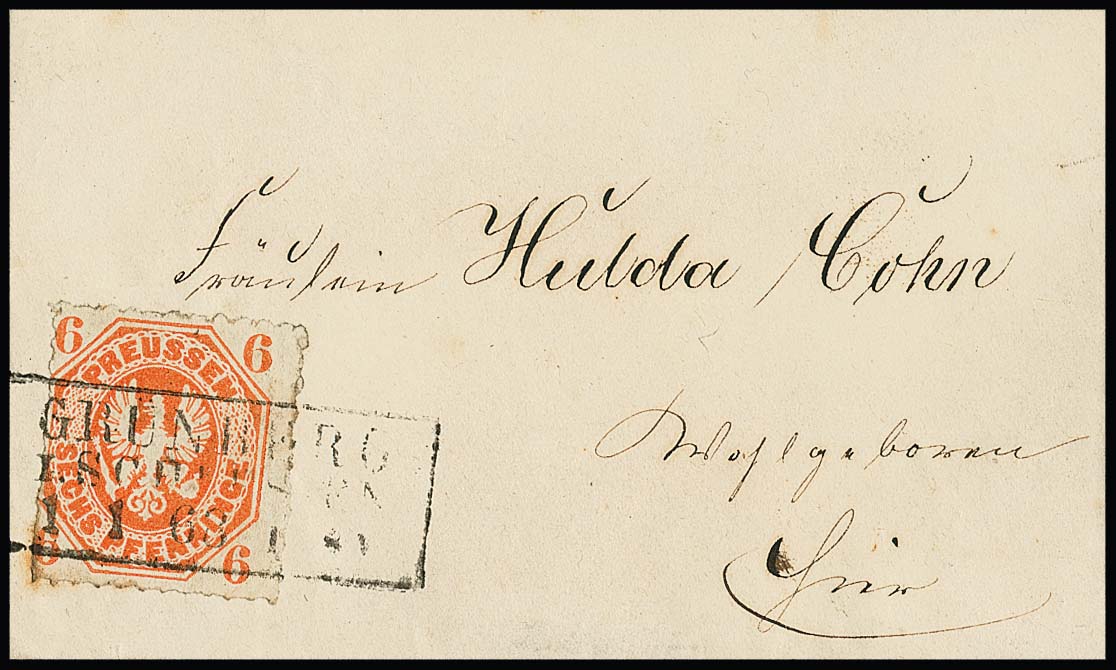 Fräulein Hulda Cohn
Wohlgeboren
Hier
6 6
PREUSSEN
SECHS PFENNINGE
6 6
GRÜNBERG
1 1 68